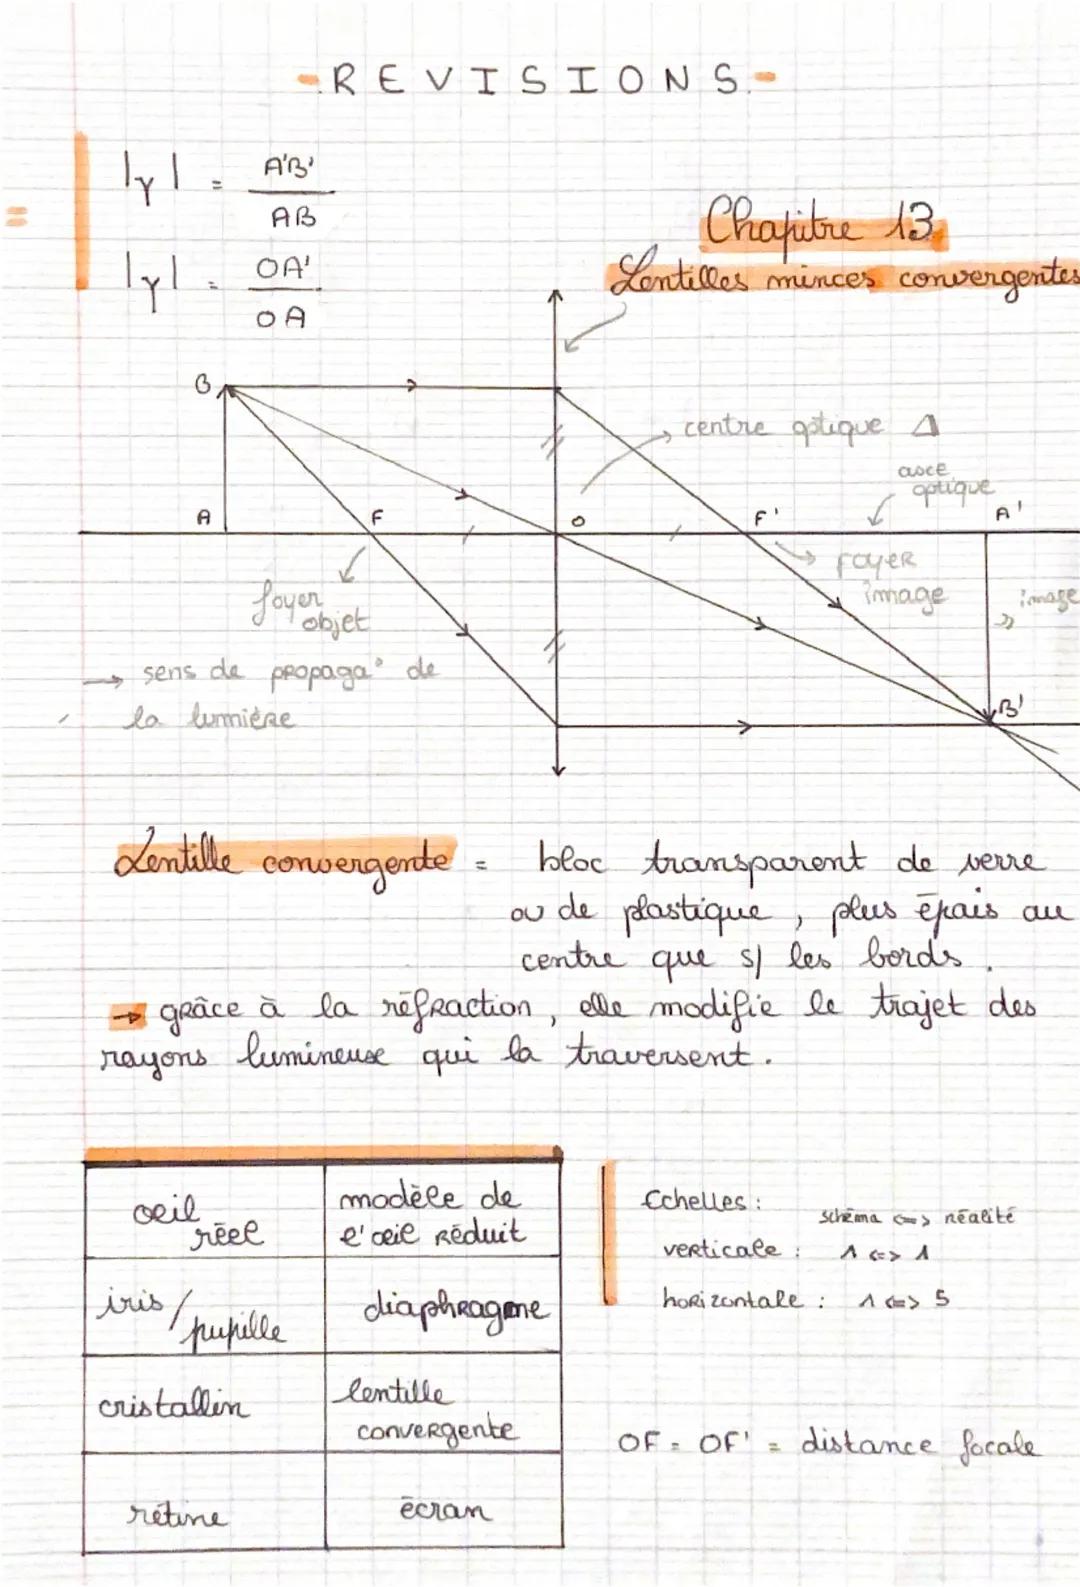 -REVISIONS.-
|γ| = A'B' / AB
|γ| = OA' / OA
Chapitre 13
Lentilles minces convergentes
B
centre optique Δ
axe
optique
A
F
O
F'
A'
foyer
objet
foyer
image
image
→ sens de propaga° de
la lumière
B'
Lentille convergente = bloc transparent de verre
ou de plastique, plus épais au
centre que s/ les bords.
→ grâce à la réfraction, elle modifie le trajet des
rayons lumineuse qui la traversent.
oeil réel
modèle de l'œil réduit
iris / pupille
diaphragme
cristallin
lentille convergente
rétine
écran
Echelles :
schéma <=> réalité
verticale : 1 <=> 1
horizontale : 1 <=> 5
OF = OF' = distance focale